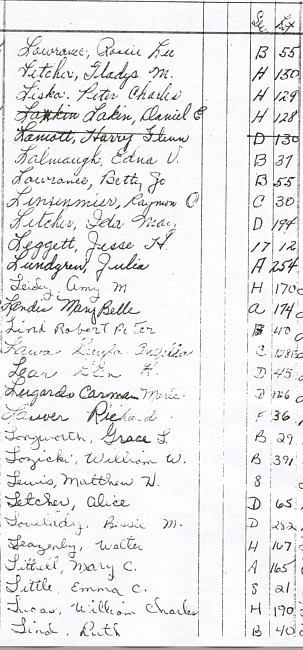 Se Lot
Lowrance, Rosie Lee B 55
Litcher, Gladys M. H 130
Liska, Peter Charles H 129
Lakin, Daniel E H 128
Lamott, Harry Glenn D 130
Lalmaugh, Edna V. B 37
Lowrance, Betty Jo B 55
Linsinmier, Raymon C 30
Litcher, Ida May, D 194
Leggett, Jesse H. 17 12
Lundgren, Julia A 254
Leidy, Amy M H 170
Landis Mary Belle a 174
Lind Robert Peter B 40
C
Lear Glen H. D 45
Lugardo Carman Marie D
Lauver Richard F 36
Longworth, Grace L B 29
Lozicki, William W. B 391
Lewis, Matthew H. 8
Letcher, Alice D 65
Lovelady, Bessie M. D 252
Leazenly, Walter H 167
Littell, Mary C. A 165
Little, Emma C. 8 21
Lucas, William Charles H 190
Lind, Ruth B 40